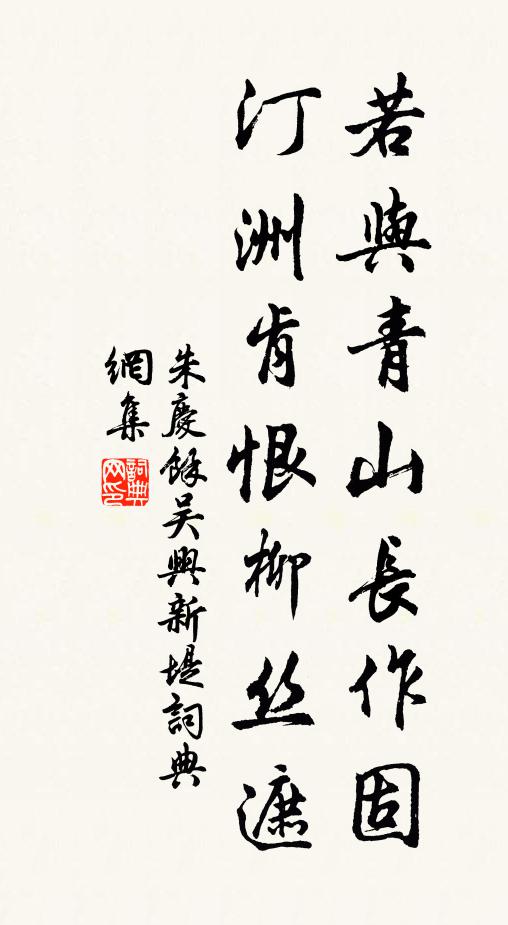 若與青山長作固
汀洲肯恨柳丝遮
朱慶餘吴興新堤詞典
網集
詞典
网印